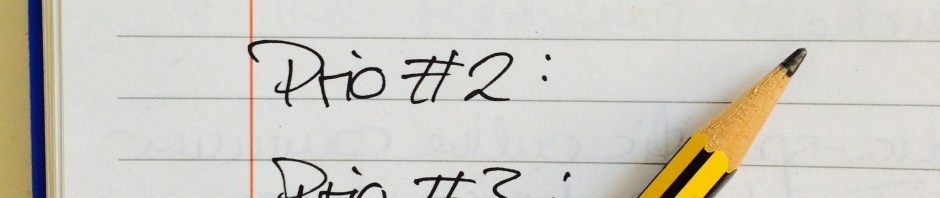 Prio #2:
Prio #3: